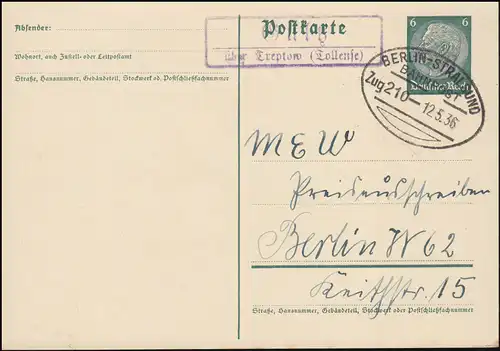 Absender:
Postkarte
6 6
Wohnort, auch Zustell- oder Leitpostamt
über Treptow (Tollense)
Deutsches Reich
Straße, Hausnummer, Gebäudeteil, Stockwerk od. Postschließfachnummer
BERLIN-STRALSUND
BAHNPOST
Zug 210 - 12.5.36
MEW
Preisausschreiben
Berlin W 62
Keithstr. 15
Straße, Hausnummer, Gebäudeteil, Stockwerk oder Postschließfachnummer